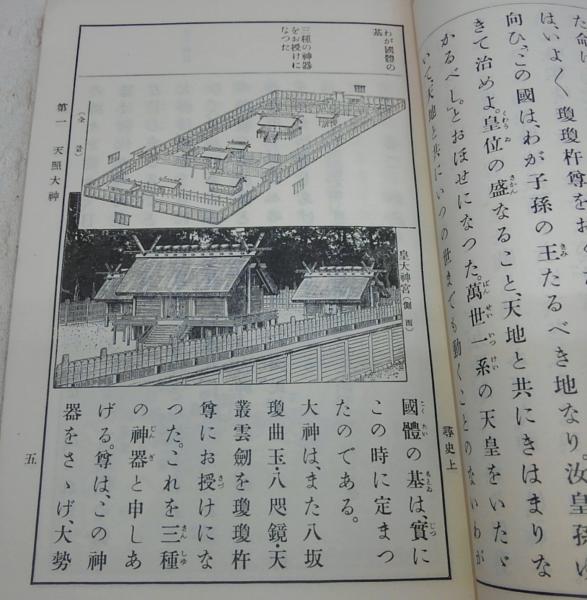 た命に
は、いよ〱瓊瓊杵尊をお
向ひ、「この國は、わが子孫の王たるべき地なり。汝皇孫ゆ
きて治めよ。皇位の盛なること、天地と共にきはまりな
かるべし。」とおほせになつた。萬世一系の天皇をいたゞ
いて、天地と共にいつの世までも動くことのないわが
尋史上
わが國體の
基
三種の神器
をお授けに
なつた
(全景)
皇大神宮(側面)
國體の基は、實に
この時に定まつ
たのである。
大神は、また八坂
瓊曲玉・八咫鏡・天
叢雲劍を瓊瓊杵
尊にお授けにな
つた。これを三種
の神器と申しあ
げる。尊は、この神
器をさゝげ、大勢
第一 天照大神
五